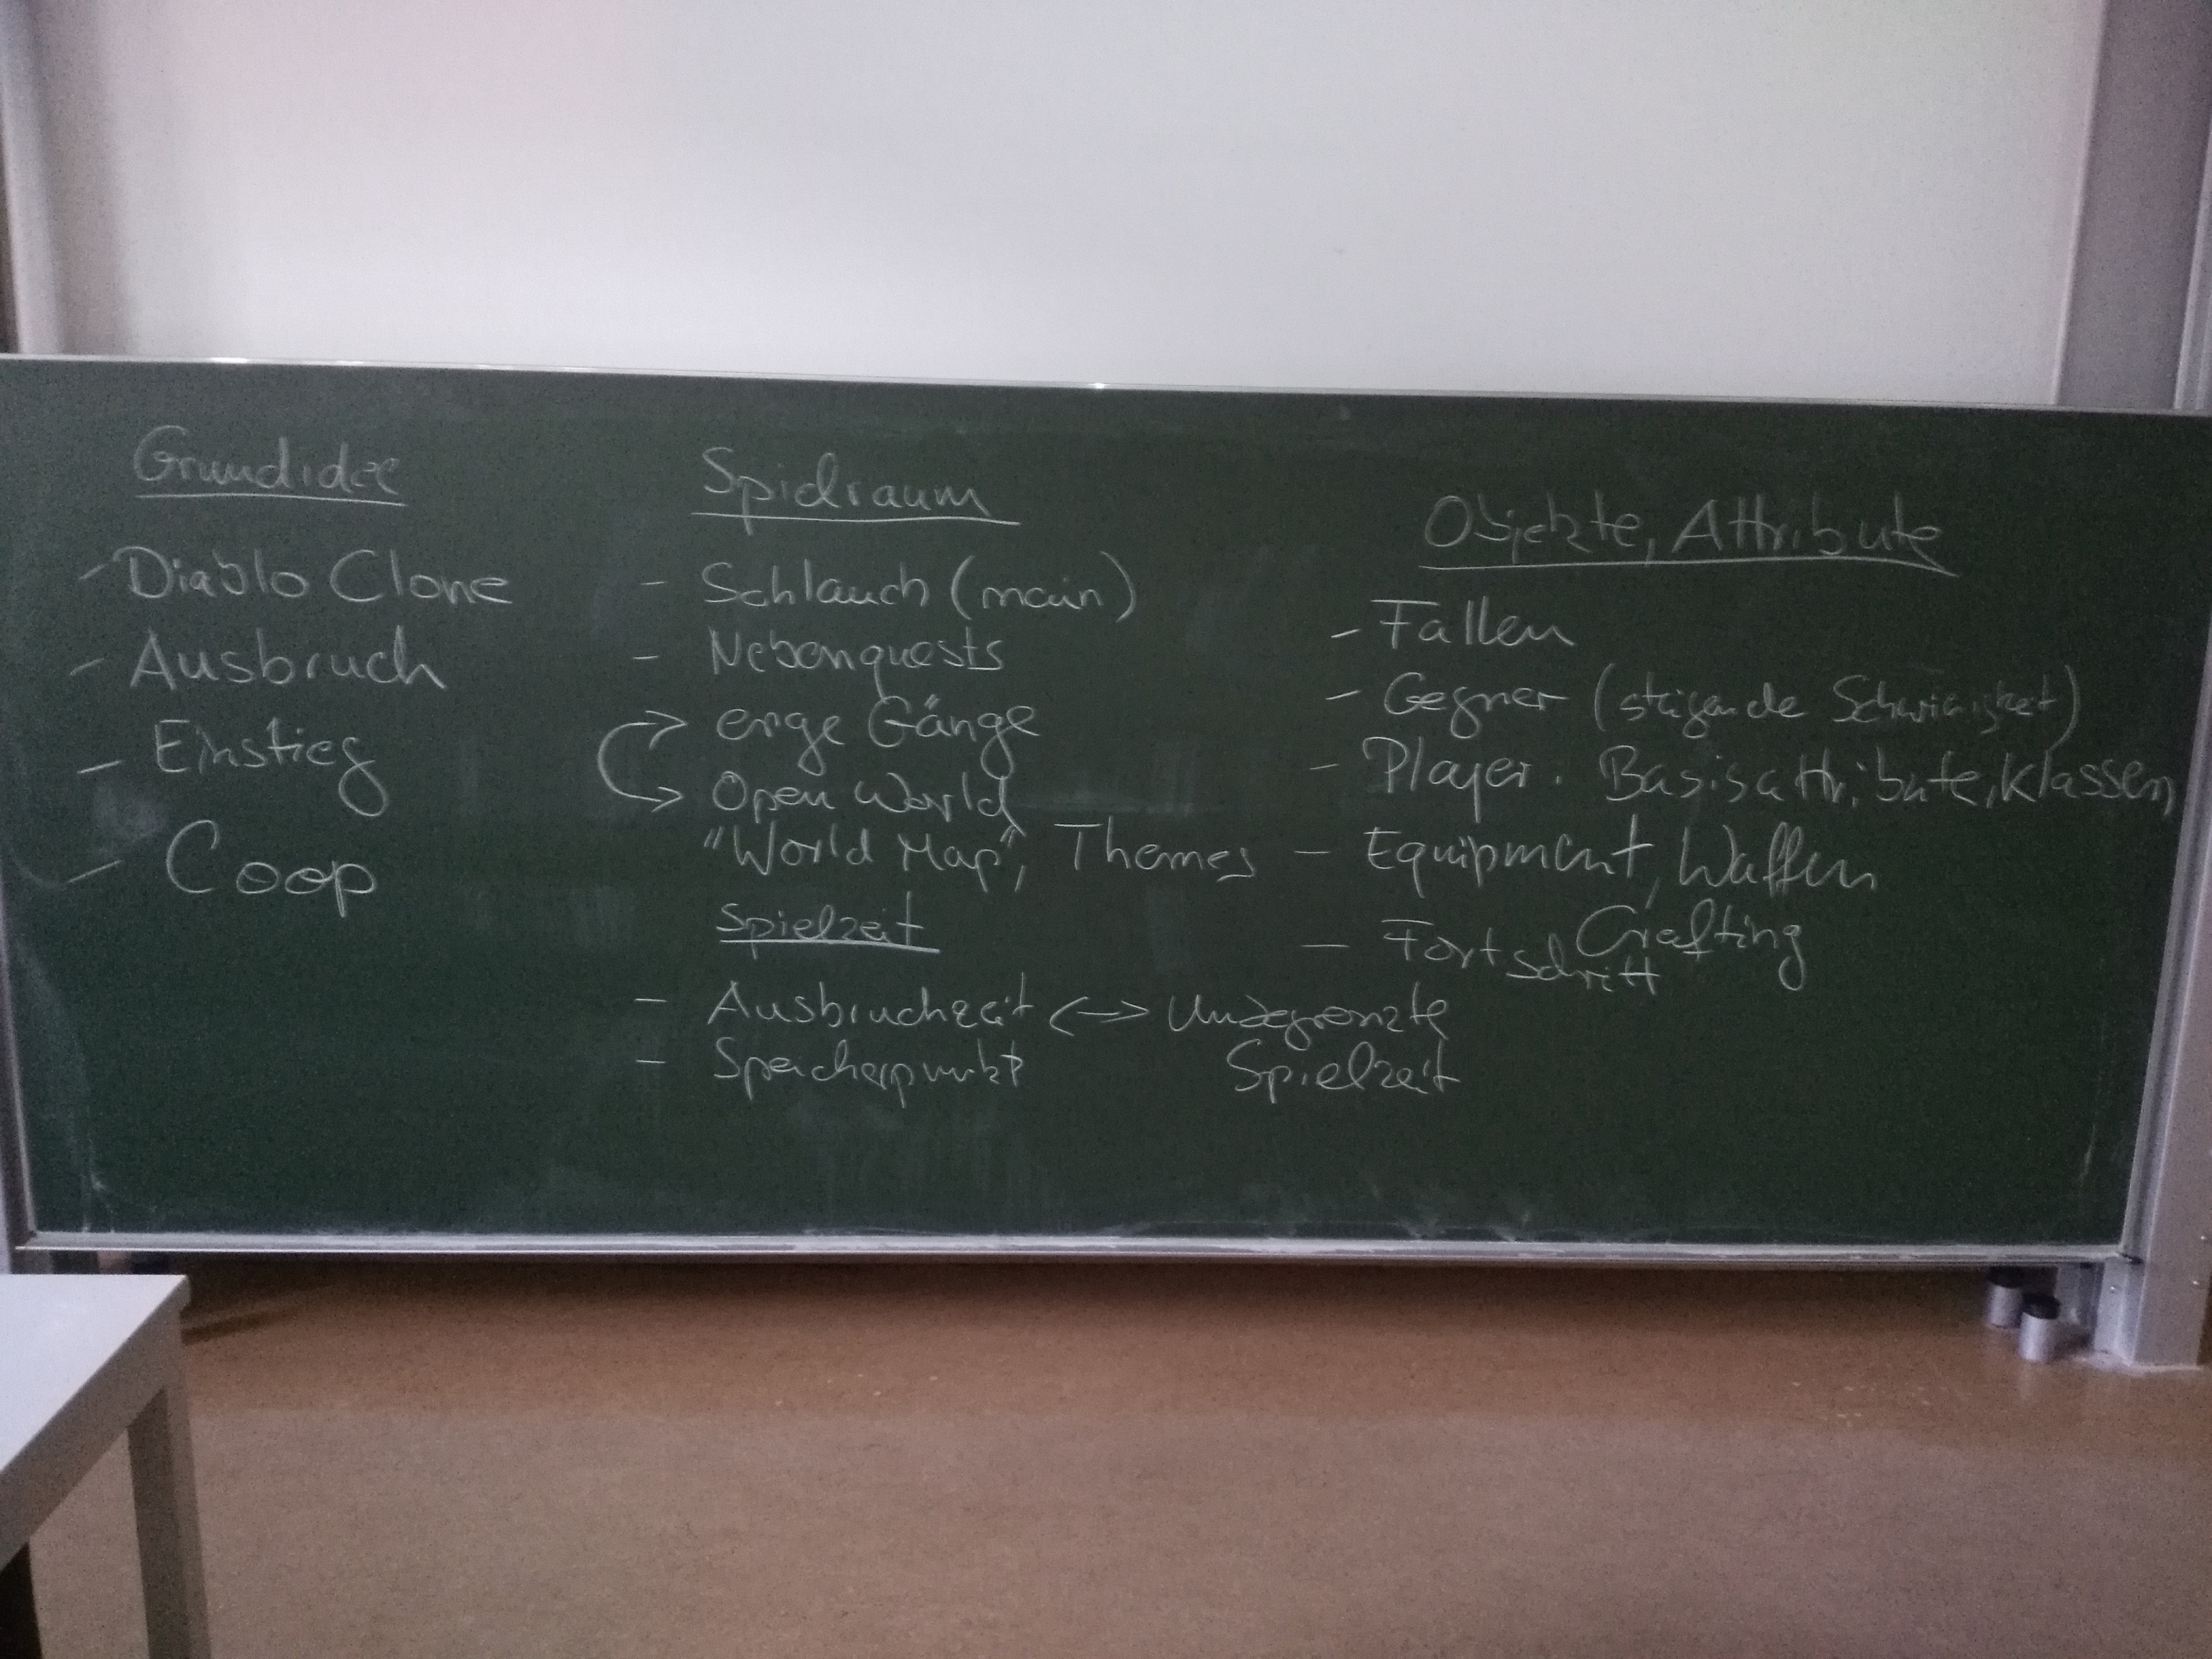 Grundidee
- Diablo Clone
- Ausbruch
- Einstieg
- Coop
Spielraum
- Schlauch (main)
- Nebenquests
enge Gänge
Open World
"World Map", Themes
Spielzeit
- Ausbruchzeit <-> Unbegrenzte
Spielzeit
- Speicherpunkt
Objekte, Attribute
- Fallen
- Gegner (steigende Schwierigkeit)
- Player: Basisattribute, Klassen
- Equipment, Waffen,
Crafting
- Fortschritt